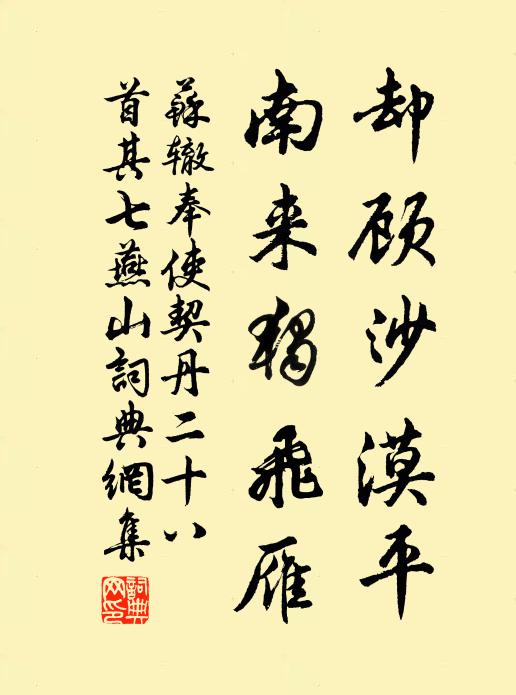 却顾沙漠平
南来独飛雁
蘇辙奉使契丹二十八
首其七燕山詞典網集
詞典網印